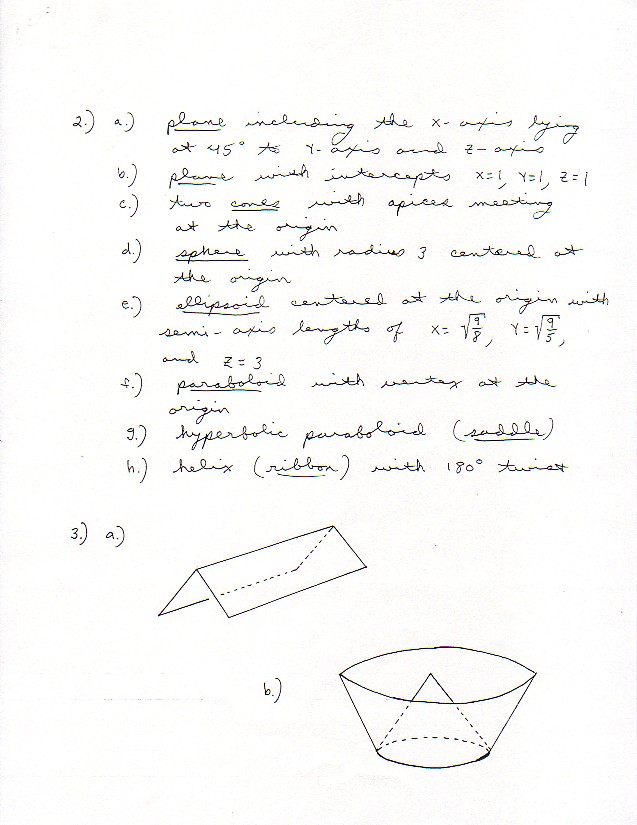 2.) a.) plane including the x-axis lying
at 45° to Y-axis and z-axis
b.) plane with intercepts x=1, Y=1, Z=1
c.) two cones with apices meeting
at the origin
d.) sphere with radius 3 centered at
the origin
e.) ellipsoid centered at the origin with
semi-axis lengths of x=√9/8, Y=√9/5,
and Z=3
f.) paraboloid with vertex at the
origin
g.) hyperbolic paraboloid (saddle)
h.) helix (ribbon) with 180° twist
3.) a.)
b.)